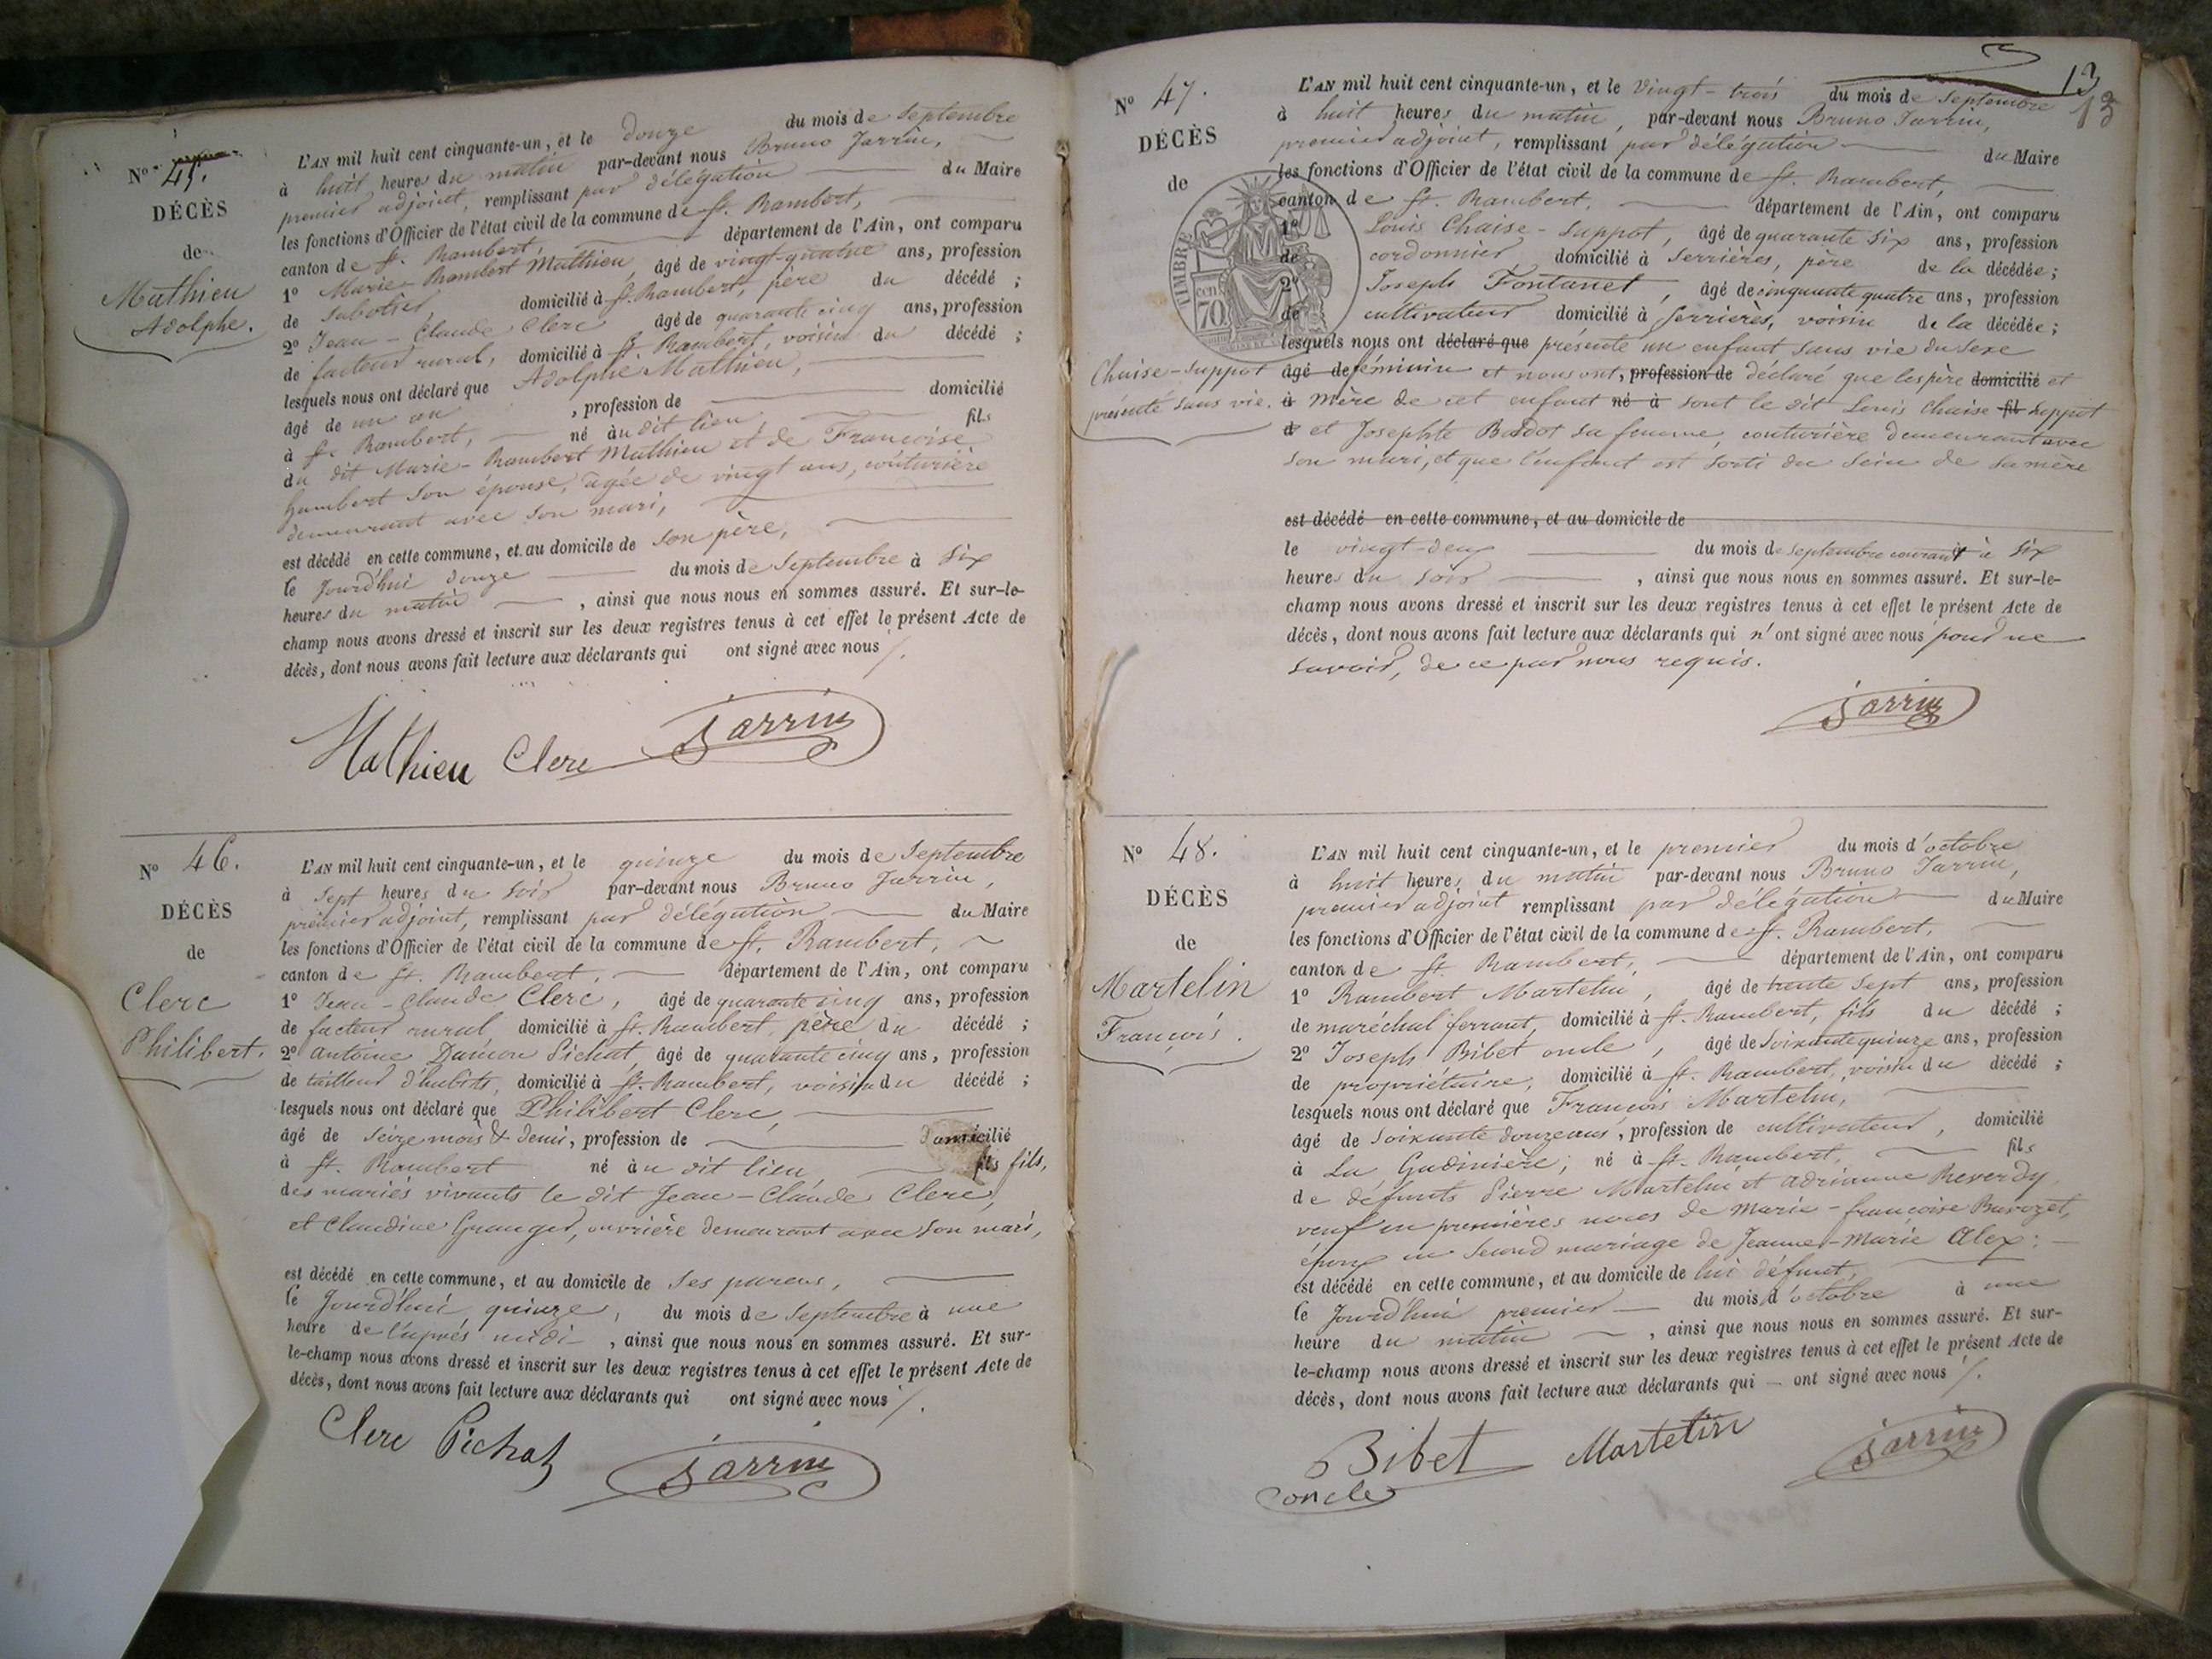 N° 45.
DÉCÈS
de
Mathieu
Adolphe.
L'AN mil huit cent cinquante-un, et le douze du mois de Septembre
à huit heures du matin par-devant nous Bruno Jarrin,
premier adjoint, remplissant par délégation du Maire
les fonctions d'Officier de l'état civil de la commune de St. Rambert,
canton de St. Rambert, département de l'Ain, ont comparu
1° Marie-Rambert Mathieu, âgé de vingt-quatre ans, profession
de sabotier, domicilié à St. Rambert, père du décédé ;
2° Jean-Claude Clerc âgé de quarante cinq ans, profession
de facteur rural, domicilié à St. Rambert, voisin du décédé ;
lesquels nous ont déclaré que Adolphe Mathieu,
âgé de un an , profession de domicilié
à St. Rambert, né au dit lieu, fils
du dit Marie-Rambert Mathieu et de Françoise
humbert son épouse, âgée de vingt ans, couturière
demeurant avec son mari,
est décédé en cette commune, et au domicile de son père,
le jourd'hui douze du mois de Septembre à six
heures du matin , ainsi que nous nous en sommes assuré. Et sur-le-
champ nous avons dressé et inscrit sur les deux registres tenus à cet effet le présent Acte de
décès, dont nous avons fait lecture aux déclarants qui ont signé avec nous /.
Mathieu Clerc Jarrin
N° 46.
DÉCÈS
de
Clerc
Philibert.
L'AN mil huit cent cinquante-un, et le quinze du mois de Septembre
à sept heures du soir par-devant nous Bruno Jarrin,
premier adjoint, remplissant par délégation du Maire
les fonctions d'Officier de l'état civil de la commune de St. Rambert,
canton de St. Rambert, département de l'Ain, ont comparu
1° Jean-Claude Clerc, âgé de quarante cinq ans, profession
de facteur rural domicilié à St. Rambert, père du décédé ;
2° Antoine Damon Pichat, âgé de quarante cinq ans, profession
de tailleur d'habits, domicilié à St. Rambert, voisin du décédé ;
lesquels nous ont déclaré que Philibert Clerc,
âgé de seize mois & demi, profession de domicilié
à St. Rambert né au dit lieu fils fils,
des mariés vivants le dit Jean-Claude Clerc,
et Claudine Granger, ouvrière demeurant avec son mari,
est décédé en cette commune, et au domicile de ses parens,
le jourd'hui quinze, du mois de Septembre à une
heure de l'après midi , ainsi que nous nous en sommes assuré. Et sur-
le-champ nous avons dressé et inscrit sur les deux registres tenus à cet effet le présent Acte de
décès, dont nous avons fait lecture aux déclarants qui ont signé avec nous /.
Clerc Pichat Jarrin
13
13
N° 47.
DÉCÈS
de
Chaise-Suppot
présenté sans vie.
TIMBRE
cen
70
L'AN mil huit cent cinquante-un, et le vingt-trois du mois de Septembre
à huit heures du matin, par-devant nous Bruno Jarrin,
premier adjoint, remplissant par délégation du Maire
les fonctions d'Officier de l'état civil de la commune de St. Rambert,
canton de St. Rambert, département de l'Ain, ont comparu
1° Louis Chaise-Suppot, âgé de quarante six ans, profession
de cordonnier, domicilié à Serrières, père de la décédée ;
2° Joseph Fontanet, âgé de cinquante quatre ans, profession
de cultivateur domicilié à Serrières, voisin de la décédée ;
lesquels nous ont déclaré que présenté un enfant sans vie du sexe
âgé de féminin et nous ont, profession de déclaré que les père domicilié et
à mère de cet enfant né à sont le dit Louis Chaise fil Suppot
d et Josephte Bardot sa femme, couturière demeurant avec
son mari, et que l'enfant est sorti du sein de sa mère
est décédé en cette commune, et au domicile de
le vingt-deux du mois de septembre courant à six
heures du soir , ainsi que nous nous en sommes assuré. Et sur-le-
champ nous avons dressé et inscrit sur les deux registres tenus à cet effet le présent Acte de
décès, dont nous avons fait lecture aux déclarants qui n'ont signé avec nous pour ne
savoir, de ce par nous requis.
Jarrin
N° 48.
DÉCÈS
de
Martelin
François.
L'AN mil huit cent cinquante-un, et le premier du mois d'octobre
à huit heures du matin par-devant nous Bruno Jarrin,
premier adjoint remplissant par délégation du Maire
les fonctions d'Officier de l'état civil de la commune de St. Rambert,
canton de St. Rambert, département de l'Ain, ont comparu
1° Rambert Martelin, âgé de trente sept ans, profession
de maréchal ferrant, domicilié à St. Rambert, fils du décédé ;
2° Joseph Bibet oncle, âgé de soixante quinze ans, profession
de propriétaire, domicilié à St. Rambert, voisin du décédé ;
lesquels nous ont déclaré que François Martelin,
âgé de soixante douze ans, profession de cultivateur, domicilié
à La Gadinière, né à St. Rambert, fils
de défunts Pierre Martelin et Adrianne Reverdy
veuf en premières noces de Marie-françoise
époux en second mariage de Jeanne-Marie Alex :
est décédé en cette commune, et au domicile de lui défunt,
le jourd'hui premier du mois d'octobre à une
heure du matin , ainsi que nous nous en sommes assuré. Et sur-
le-champ nous avons dressé et inscrit sur les deux registres tenus à cet effet le présent Acte de
décès, dont nous avons fait lecture aux déclarants qui ont signé avec nous /.
Bibet Martelin Jarrin
oncle